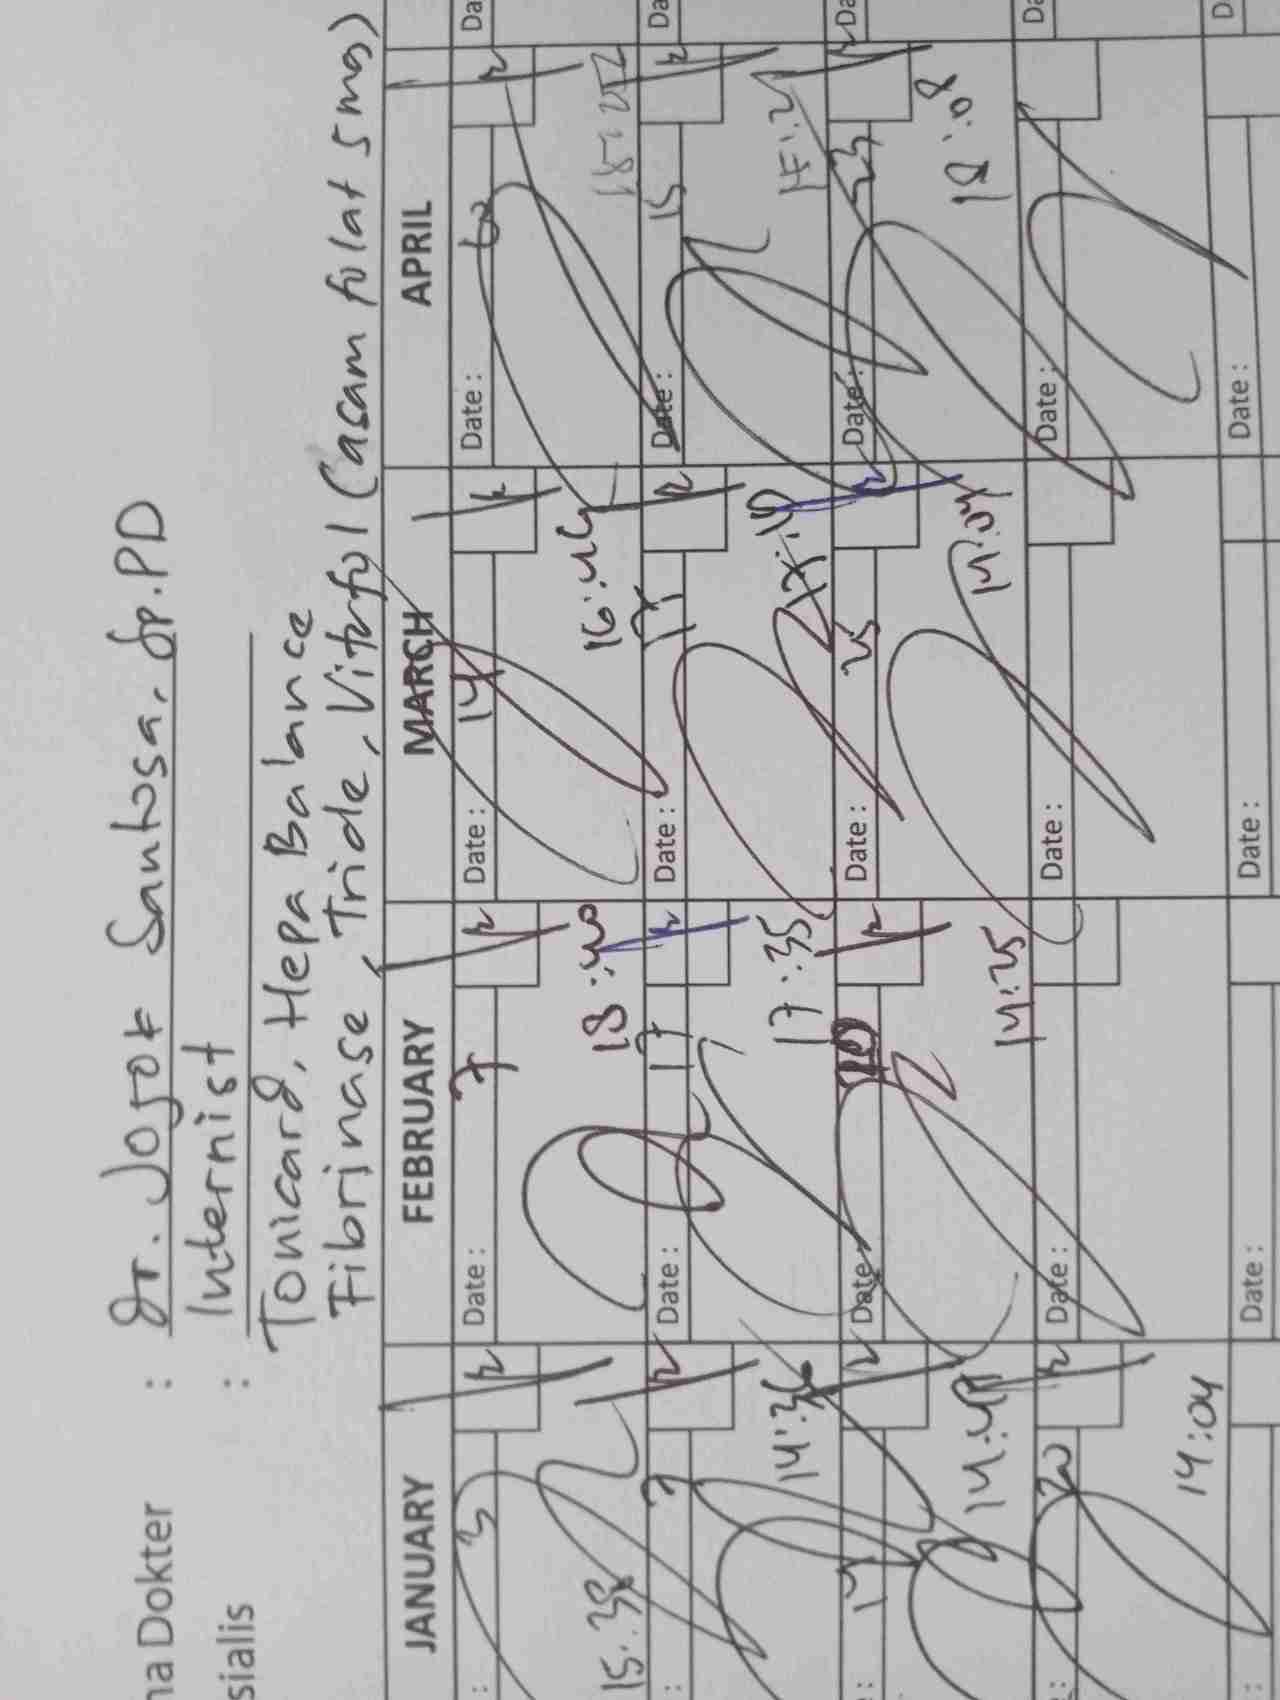 na Dokter : dr. Josok Santosa, Sp.PD
sialis : Internist
Tonicard, Hepa Balance
Fibrinase, Tride, Vitafol (asam folat 5 mg)
JANUARY FEBRUARY MARCH APRIL
: 3 Date : 7 Date : 14 Date : Da
15:38 18:40 16:46 18:
: 7 Date : 17 Date : 17 Date : 15 Da
14:36 17:35 17:15
: 17 Date : Date : 25 Date : 23 Da
14:25 14:04 18:08
20 Date : Date : Date : Da
14:04
: Date : Date : Date : D